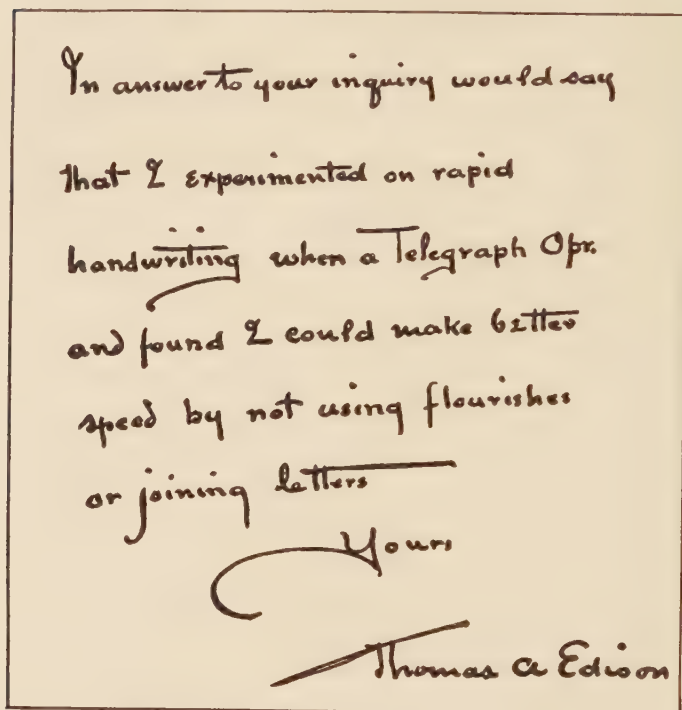 In answer to your inquiry would say
that I experimented on rapid
handwriting when a Telegraph Opr.
and found I could make better
speed by not using flourishes
or joining letters
Yours
Thomas A Edison